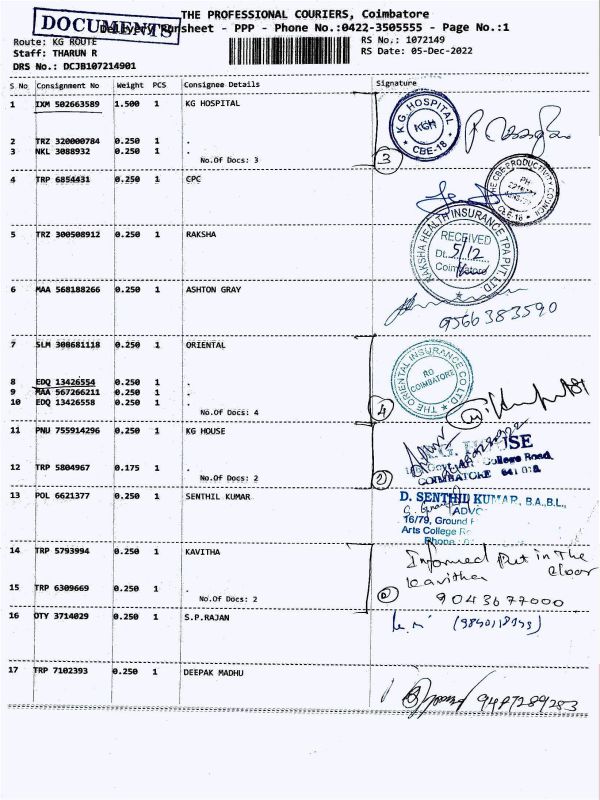 DOCUMENTS
THE PROFESSIONAL COURIERS, Coimbatore
Delivery Runsheet - PPP - Phone No.:0422-3505555 - Page No.:1
Route: KG ROUTE
RS No.: 1072149
Staff: THARUN R
RS Date: 05-Dec-2022
DRS No.: DCJB107214901
S No Consignment No Weight PCS Consignee Details Signature
1 IXM 502663589 1.500 1 KG HOSPITAL
K.G. HOSPITAL
KGH
CBE-18
2 TRZ 320000784 0.250 1 .
3 NKL 3088932 0.250 1 .
No.Of Docs: 3
3
4 TRP 6854431 0.250 1 CPC
THE CBE PRODUCTIVITY COUNCIL
PH
CBE-18
5 TRZ 300508912 0.250 1 RAKSHA
RAKSHA HEALTH INSURANCE TPA PVT. LTD
RECEIVED
Dt. 5/12
Coimbatore
6 MAA 568188266 0.250 1 ASHTON GRAY
9566383590
7 SLM 308681118 0.250 1 ORIENTAL
THE ORIENTAL INSURANCE CO LTD
RO
COIMBATORE
8 EDQ 13426554 0.250 1 .
9 MAA 567266211 0.250 1 .
10 EDQ 13426558 0.250 1 .
No.Of Docs: 4
4
11 PNU 755914296 0.250 1 KG HOUSE
K.G. HOUSE
Govt. Art College Road,
COIMBATORE 641 018
12 TRP 5804967 0.175 1 .
No.Of Docs: 2
2
13 POL 6621377 0.250 1 SENTHIL KUMAR
D. SENTHIL KUMAR, B.A.,B.L.,
ADVO
16/79, Ground F
Arts College Ro
Phone :
14 TRP 5793994 0.250 1 KAVITHA
Informed Put in The
Kavitha door
15 TRP 6309669 0.250 1 .
No.Of Docs: 2
9043677000
16 OTY 3714029 0.250 1 S.P.RAJAN
17 TRP 7102393 0.250 1 DEEPAK MADHU
9487289283